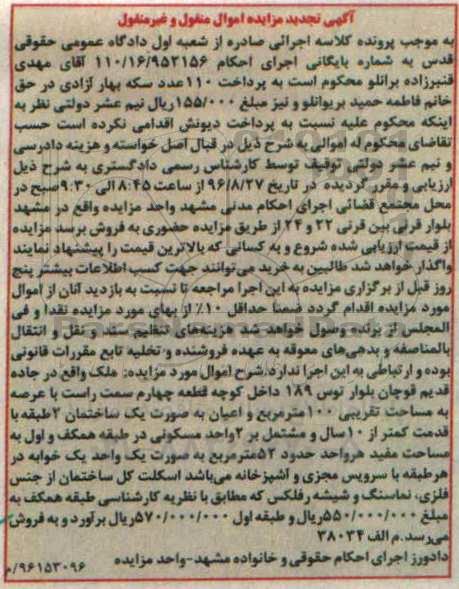 آگهی تجدید مزایده اموال منقول و غیرمنقول
به موجب پرونده کلاسه اجرائی صادره از شعبه اول دادگاه عمومی حقوقی
قدس به شماره بایگانی اجرای احکام ۱۱۰/۱۶/۹۵۲۱۵۶ آقای مهدی
قنبرزاده برانلو محکوم است به پرداخت ۱۱۰عدد سکه بهار آزادی در حق
خانم فاطمه حمید بریوانلو و نیز مبلغ ۱۵۵/۰۰۰ریال نیم عشر دولتی نظر به
اینکه محکوم علیه نسبت به پرداخت دیونش اقدامی نکرده است حسب
تقاضای محکوم له اموالی به شرح ذیل در قبال اصل خواسته و هزینه دادرسی
و نیم عشر دولتی توقیف توسط کارشناس رسمی دادگستری به شرح ذیل
ارزیابی و مقرر گردیده در تاریخ ۹۶/۸/۲۷ از ساعت ۸:۴۵ الی ۹:۳۰ صبح در
محل مجتمع قضائی اجرای احکام مدنی مشهد واحد مزایده واقع در مشهد
بلوار قرنی بین قرنی ۲۲ و ۲۴ از طریق مزایده حضوری به فروش برسد مزایده
از قیمت ارزیابی شده شروع و به کسانی که بالاترین قیمت را پیشنهاد نمایند
واگذار خواهد شد طالبین به خرید می‌توانند جهت کسب اطلاعات بیشتر پنج
روز قبل از برگزاری مزایده به این اجرا مراجعه تا نسبت به بازدید آنان از اموال
مورد مزایده اقدام گردد ضمنا حداقل ۱۰٪ از بهای مورد مزایده نقدا و فی
المجلس از برنده وصول خواهد شد هزینه‌های تنظیم سند و نقل و انتقال
بالمناصفه و بدهی‌های معوقه به عهده فروشنده و تخلیه تابع مقررات قانونی
بوده و ارتباطی به این اجرا ندارد.شرح اموال مورد مزایده: ملک واقع در جاده
قدیم قوچان بلوار توس ۱۸۹ داخل کوچه قطعه چهارم سمت راست با عرصه
به مساحت تقریبی ۱۰۰مترمربع و اعیان به صورت یک ساختمان ۲طبقه با
قدمت کمتر از ۱۰سال و مشتمل بر ۲واحد مسکونی در طبقه همکف و اول به
مساحت مفید هرواحد حدود ۵۲مترمربع به صورت یک واحد یک خوابه در
هرطبقه با سرویس مجزی و آشپزخانه می‌باشد اسکلت کل ساختمان از جنس
فلزی، نماسنگ و شیشه رفلکس که مطابق با نظریه کارشناسی طبقه همکف به
مبلغ ۵۵۰/۰۰۰/۰۰۰ریال و طبقه اول ۵۷۰/۰۰۰/۰۰۰ریال برآورد و به فروش
می‌رسد.م الف ۳۸۰۳۴
دادورز اجرای احکام حقوقی و خانواده مشهد-واحد مزایده ۰/۹۶۱۵۳۰۹۶